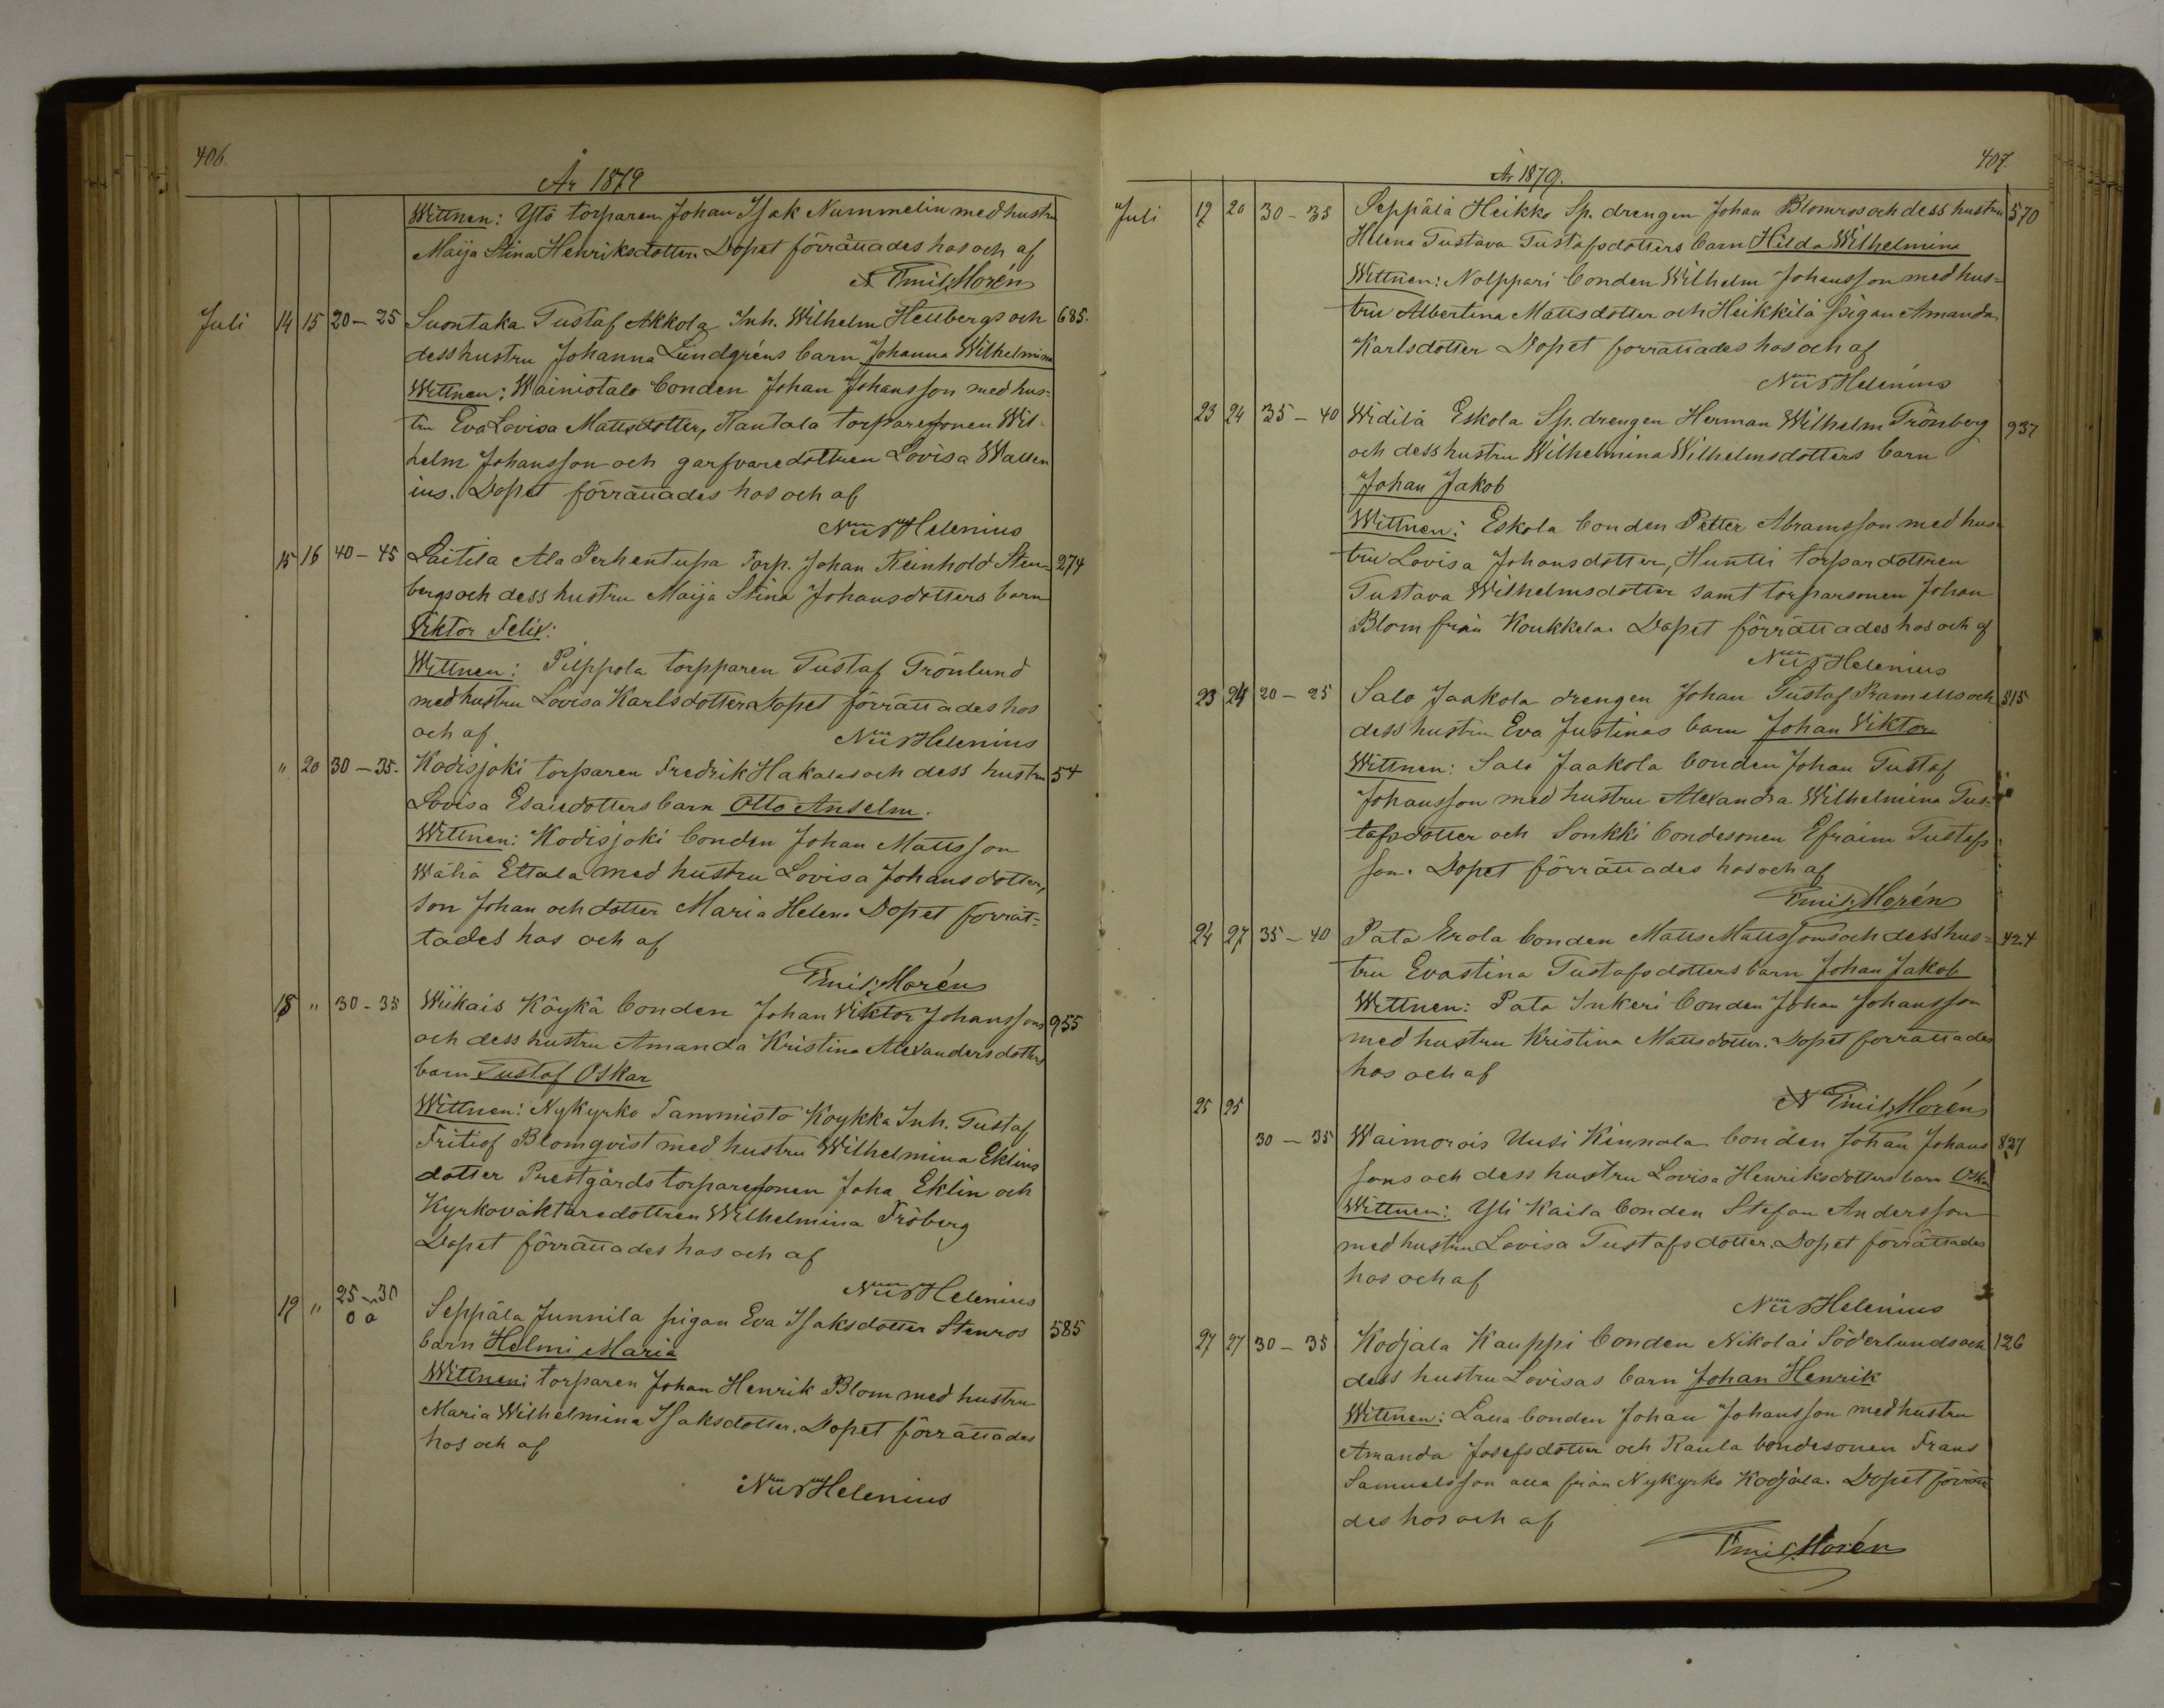 406.
År 1879
Wittnen: Ytö torparen Johan Isak Nummelin med hustru
Maija Stina Henriksdotter. Dopet förrättades hos och af
Emil Morén
Juli 14 15 20-25 Suontaka Gustaf Akkola Inh. Wilhelm Hellbergs och 685.
dess hustru Johanna Lundgréns barn Johanna Wilhelmina
Wittnen: Wainiotalo bonden Johan Johansson med hus-
tru Eva Lovisa Mattsdotter, Rautala torparesonen Wil-
helm Johansson och garfvaredottren Lovisa Wallen
ius. Dopet förrättades hos och af
Helenius
15 16 40-45 Laitila Ala Perhentupa Torp. Johan Reinhold Sten- 274
bergs och dess hustru Maija Stina Johansdotters barn
Viktor Felix:
Wittnen: Pilppola torpparen Gustaf Grönlund
med hustru Lovisa Karlsdotter Dopet förrättades hos
och af Helenius
" 20 30-35. Kodisjoki torparen Fredrik Hakalas och dess hustru 54
Lovisa Esaiedotters barn Otto Anselm.
Wittnen: Kodisjoki bonden Johan Mattsson
Wähä Ettala med hustru Lovisa Johansdotter,
son Johan och dotter Maria Helen. Dopet förrät-
tades hos och af
Emil Morén
18 " 30-35 Wiikais Köykä bonden Johan Viktor Johanssons 955
och dess hustru Amanda Kristina Alexandersdotters
barn Gustaf Oskar
Wittnen: Nykyrko Tammisto Koykka Inh. Gustaf
Fritiof Blomqvist med hustru Wilhelmina Eklins
dotter Prestgårds torparesonen Joha Eklin och
Kyrkovaktaredottren Wilhelmina Fröberg
Dopet förrättades hos och af
Helenius
19 " 25-30 Seppäla Junnila pigan Eva Isaksdotter Stenros 585
o ä
barn Helmi Maria
Wittnen: torparen Johan Henrik Blom med hustru
Maria Wilhelmina Isaksdotter. Dopet förrättades
hos och af
Helenius
407.
År 1879.
Juli 17 20 30-35 Seppälä Heikko Sp. drengen Johan Blomros och dess hustru 570
Helena Gustava Gustafsdotters barn Hilda Wilhelmina
Wittnen: Nolppari bonden Wilhelm Johansson med hus-
tru Albertina Mattsdotter och Heikkilä pigan Amanda
Karlsdotter Dopet förrättades hos och af
Helenius
23 24 35-40 Widilä Eskola Sp. drengen Herman Wilhelm Grönberg 937
och dess hustru Wilhelmina Wilhelmsdotters barn
Johan Jakob
Wittnen: Eskola bonden Petter Abramsson med hus-
tru Lovisa Johansdotter, Huntti torpardottren
Gustava Wilhelmsdotter samt torparsonen Johan
Blom från Koukkela. Dopet förrättades hos och af
Helenius
23 24 20-25 Salo Jaakola drengen Johan Gustaf Bramells och 515
dess hustru Eva Justinas barn Johan Viktor
Wittnen: Salo Jaakola bonden Johan Gustaf
Johansson med hustru Alexandra Wilhelmina Gus-
tafsdotter och Sonkki bondesonen Efraim Gustafs
son. Dopet förrättades hos och af
Emil Morén
24 27 35-40 Pata Erola bonden Matts Mattssons och dess hus- 424
tru Evastina Gustafsdotters barn Johan Jakob
Wittnen: Pata Inkeri bonden Johan Johansson
med hustru Kristina Mattsdotter. Dopet förrättades
hos och af
Emil Morén
25 25
30-35 Waimorois Uusi Kinnala bonden Johan Johans 827
sons och dess hustru Lovisa Henriksdotters barn Oskar
Wittnen: Yli Kaila bonden Stefan Andersson
med hustru Lovisa Gustafsdotter. Dopet förrättades
hos och af
Helenius
27 27 30-35 Kodjala Kauppi bonden Nikolai Söderlunds och 126
dess hustru Lovisas barn Johan Henrik
Wittnen: Lalla bonden Johan Johansson med hustru
Amanda Josefsdotter och Raula bondesonen Frans
Samuelsson alla från Nykyrko Kodjala. Dopet förrätta
des hos och af
Emil Morén